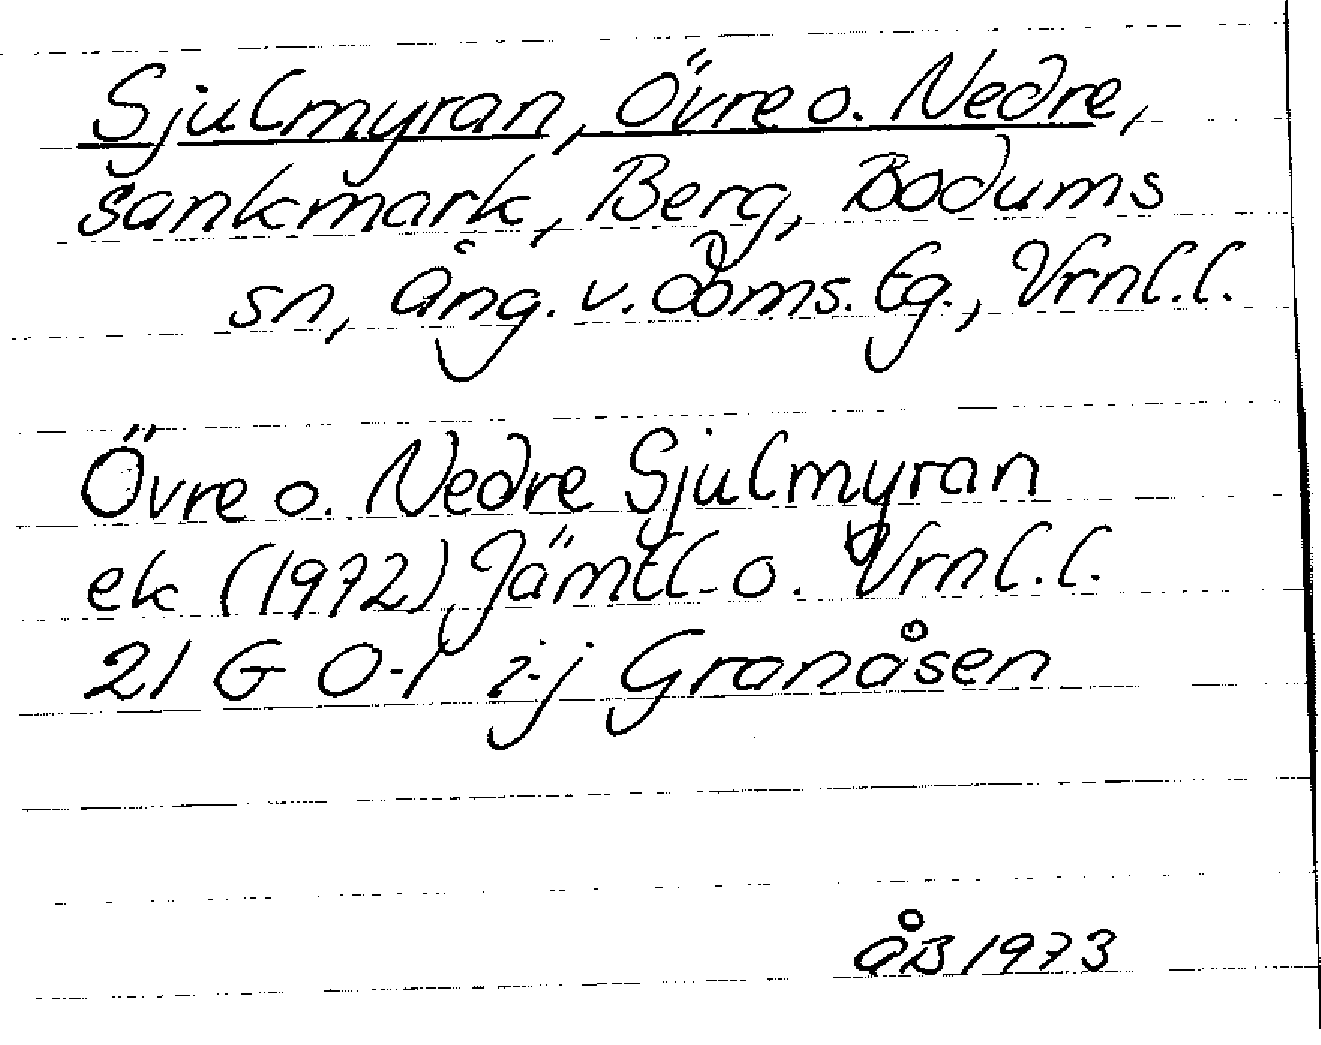 Sjulmyran, Övre o. Nedre,
sankmark, Berg, Bodums
sn, Ång. v. doms. Eg., Vrnl.l.
Övre o. Nedre Sjulmyran
ek (1972) Jämtl. o. Vrnl.l.
21 G 0-1 i-j Granåsen
ÅB 1973